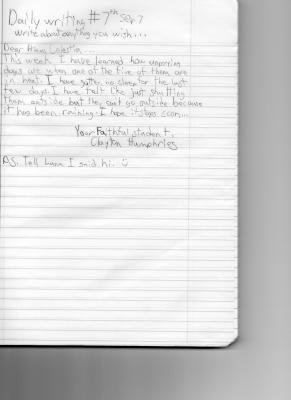 Daily writing #7th Sep 7
write about anything you wish...
Dear Celestia...
This week I have learned how annoying
days are when one of the five of them are
in heat. I have gotten no sleep for the last
few days. I have felt like just shutting
them outside but they can't go outside because
it has been raining. I hope it stops soon...
Your Faithful student,
Clayton Humphries
P.S. Tell Luna I said hi. :)